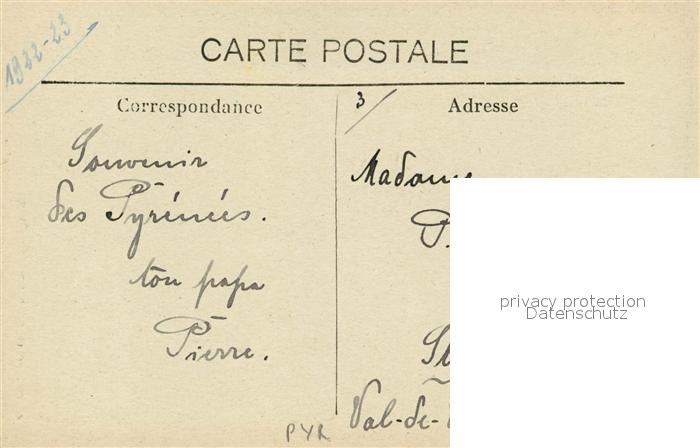 1922-23
CARTE POSTALE
Correspondance
3/
Adresse
Souvenir
des Pyrénées.
ton papa
Pierre.
Madame
P.
privacy protection
Datenschutz
St
Val-de-
PYR